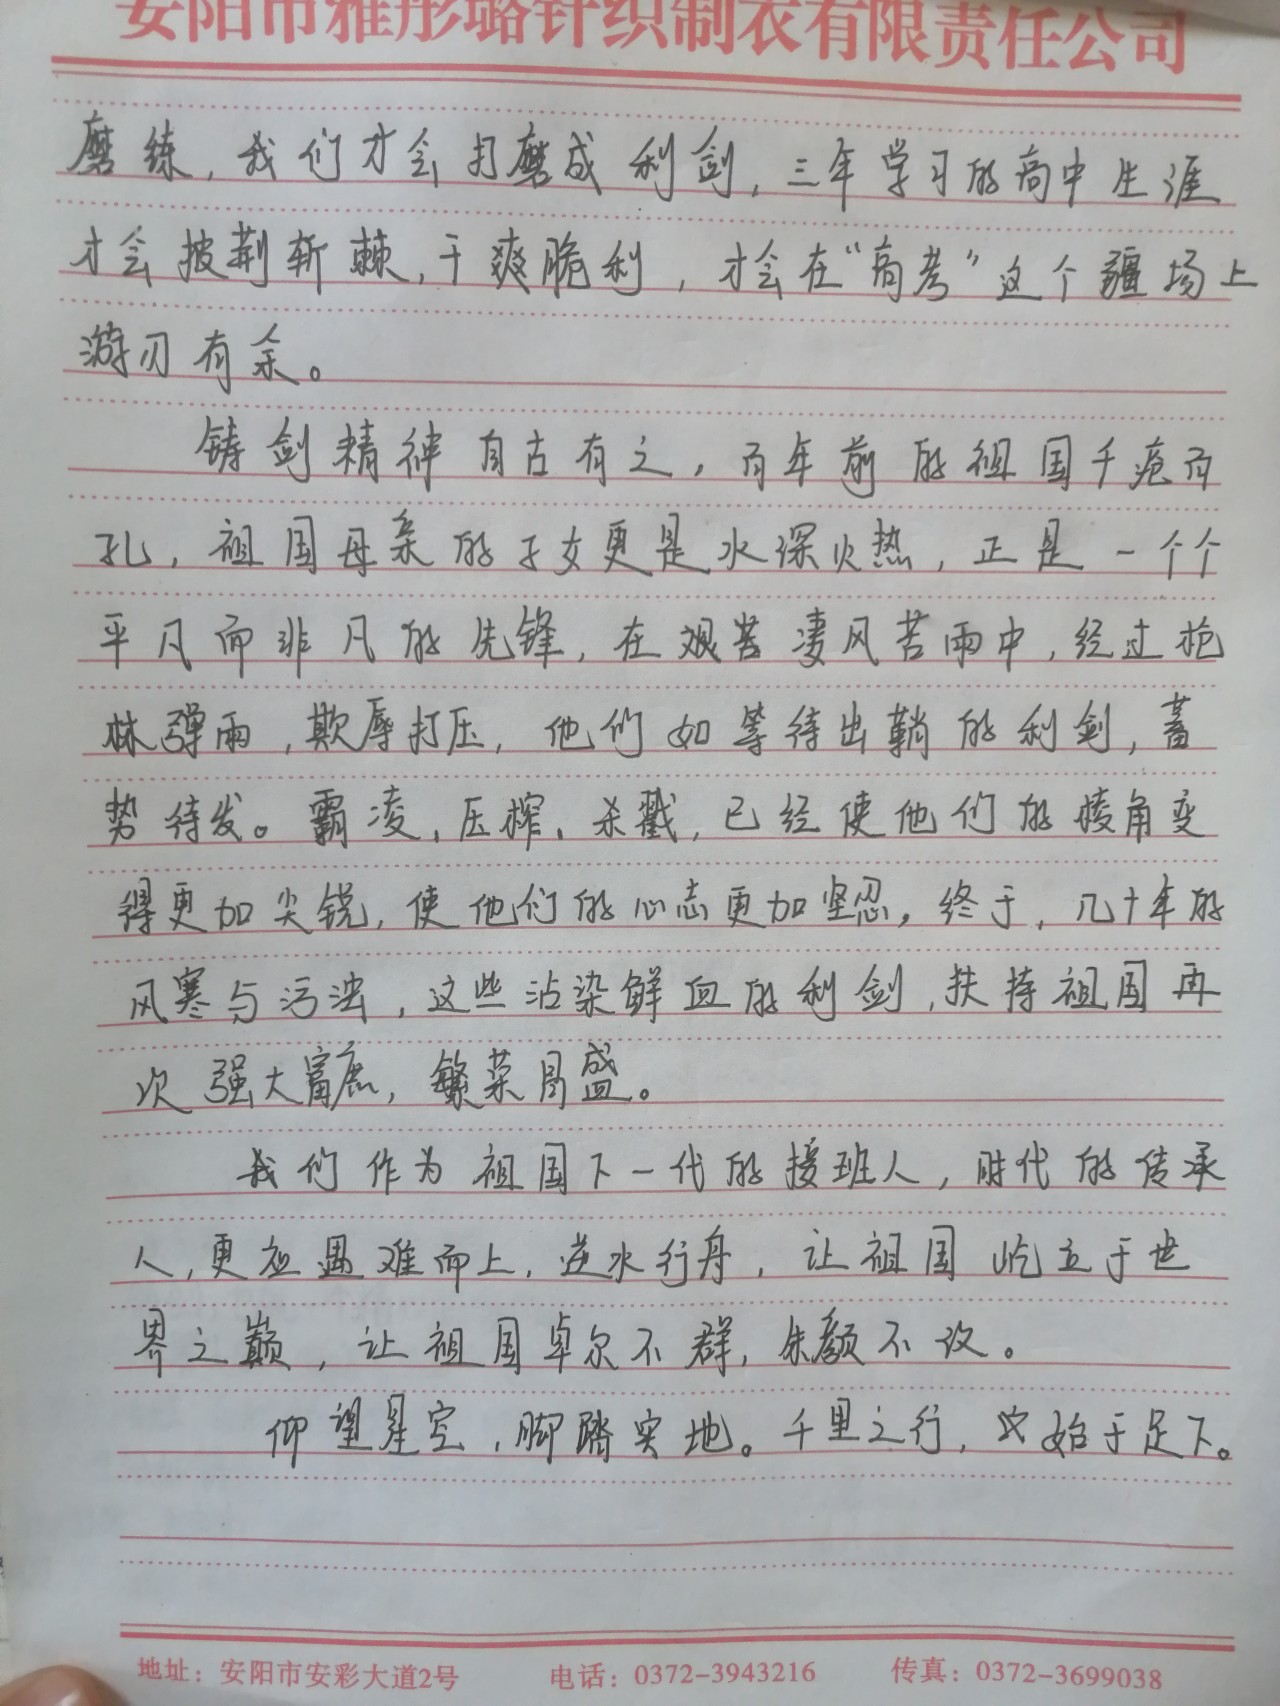 安阳市雅彤璐针织制衣有限责任公司
磨练，我们才会打磨成利剑，三年学习的高中生涯
才会披荆斩棘，干爽脆利，才会在“高考”这个疆场上
游刃有余。
铸剑精神自古有之，百年前的祖国千疮百
孔，祖国母亲的子女更是水深火热，正是一个个
平凡而非凡的先锋，在艰苦凄风苦雨中，经过枪
林弹雨，欺辱打压，他们如等待出鞘的利剑，蓄
势待发。霸凌，压榨，杀戮，已经使他们的棱角变
得更加尖锐，使他们的心志更加坚忍，终于，几十年的
风寒与污浊，这些沾染鲜血的利剑，扶持祖国再
次强大富庶，繁荣昌盛。
我们作为祖国下一代的接班人，时代的传承
人，更应遇难而上，逆水行舟，让祖国屹立于世
界之巅，让祖国卓尔不群，朱颜不改。
仰望星空，脚踏实地。千里之行，始于足下。
地址：安阳市安彩大道2号 电话：0372-3943216 传真：0372-3699038